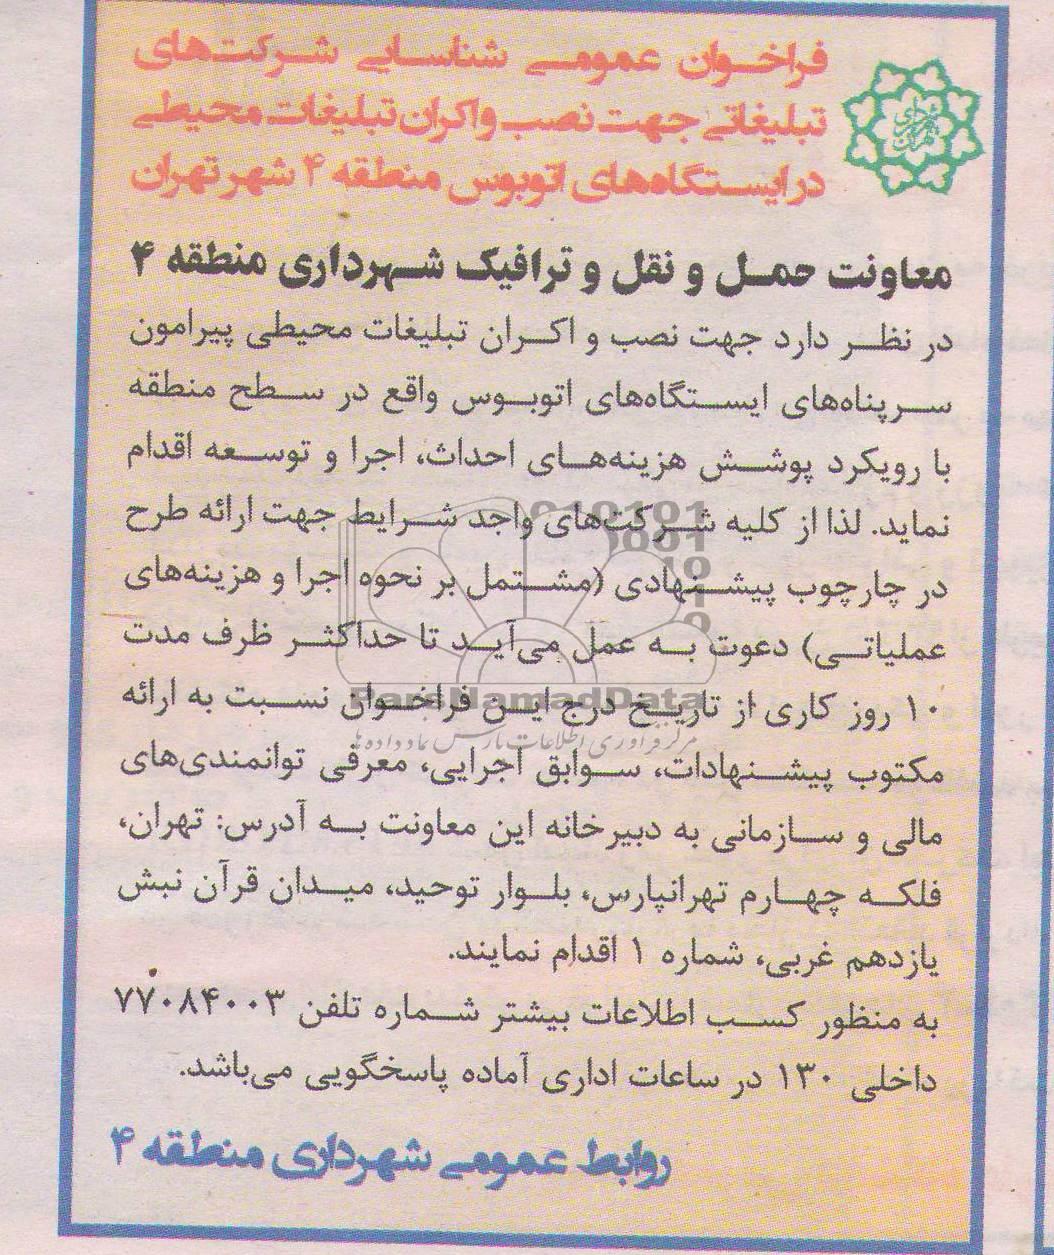 فراخوان عمومی شناسایی شرکت‌های
تبلیغاتی جهت نصب و اکران تبلیغات محیطی
در ایستگاه‌های اتوبوس منطقه ۴ شهر تهران
شهرداری تهران
معاونت حمل و نقل و ترافیک شهرداری منطقه ۴
در نظر دارد جهت نصب و اکران تبلیغات محیطی پیرامون
سرپناه‌های ایستگاه‌های اتوبوس واقع در سطح منطقه
با رویکرد پوشش هزینه‌های احداث، اجرا و توسعه اقدام
نماید. لذا از کلیه شرکت‌های واجد شرایط جهت ارائه طرح
در چارچوب پیشنهادی (مشتمل بر نحوه اجرا و هزینه‌های
عملیاتی) دعوت به عمل می‌آید تا حداکثر ظرف مدت
۱۰ روز کاری از تاریخ درج این فراخوان نسبت به ارائه
ParsNamadData
مرکز فرآوری اطلاعات پارس نماد داده‌ها
مکتوب پیشنهادات، سوابق اجرایی، معرفی توانمندی‌های
مالی و سازمانی به دبیرخانه این معاونت به آدرس: تهران،
فلکه چهارم تهرانپارس، بلوار توحید، میدان قرآن نبش
یازدهم غربی، شماره ۱ اقدام نمایند.
به منظور کسب اطلاعات بیشتر شماره تلفن ۷۷۰۸۴۰۰۳
داخلی ۱۳۰ در ساعات اداری آماده پاسخگویی می‌باشد.
روابط عمومی شهرداری منطقه ۴